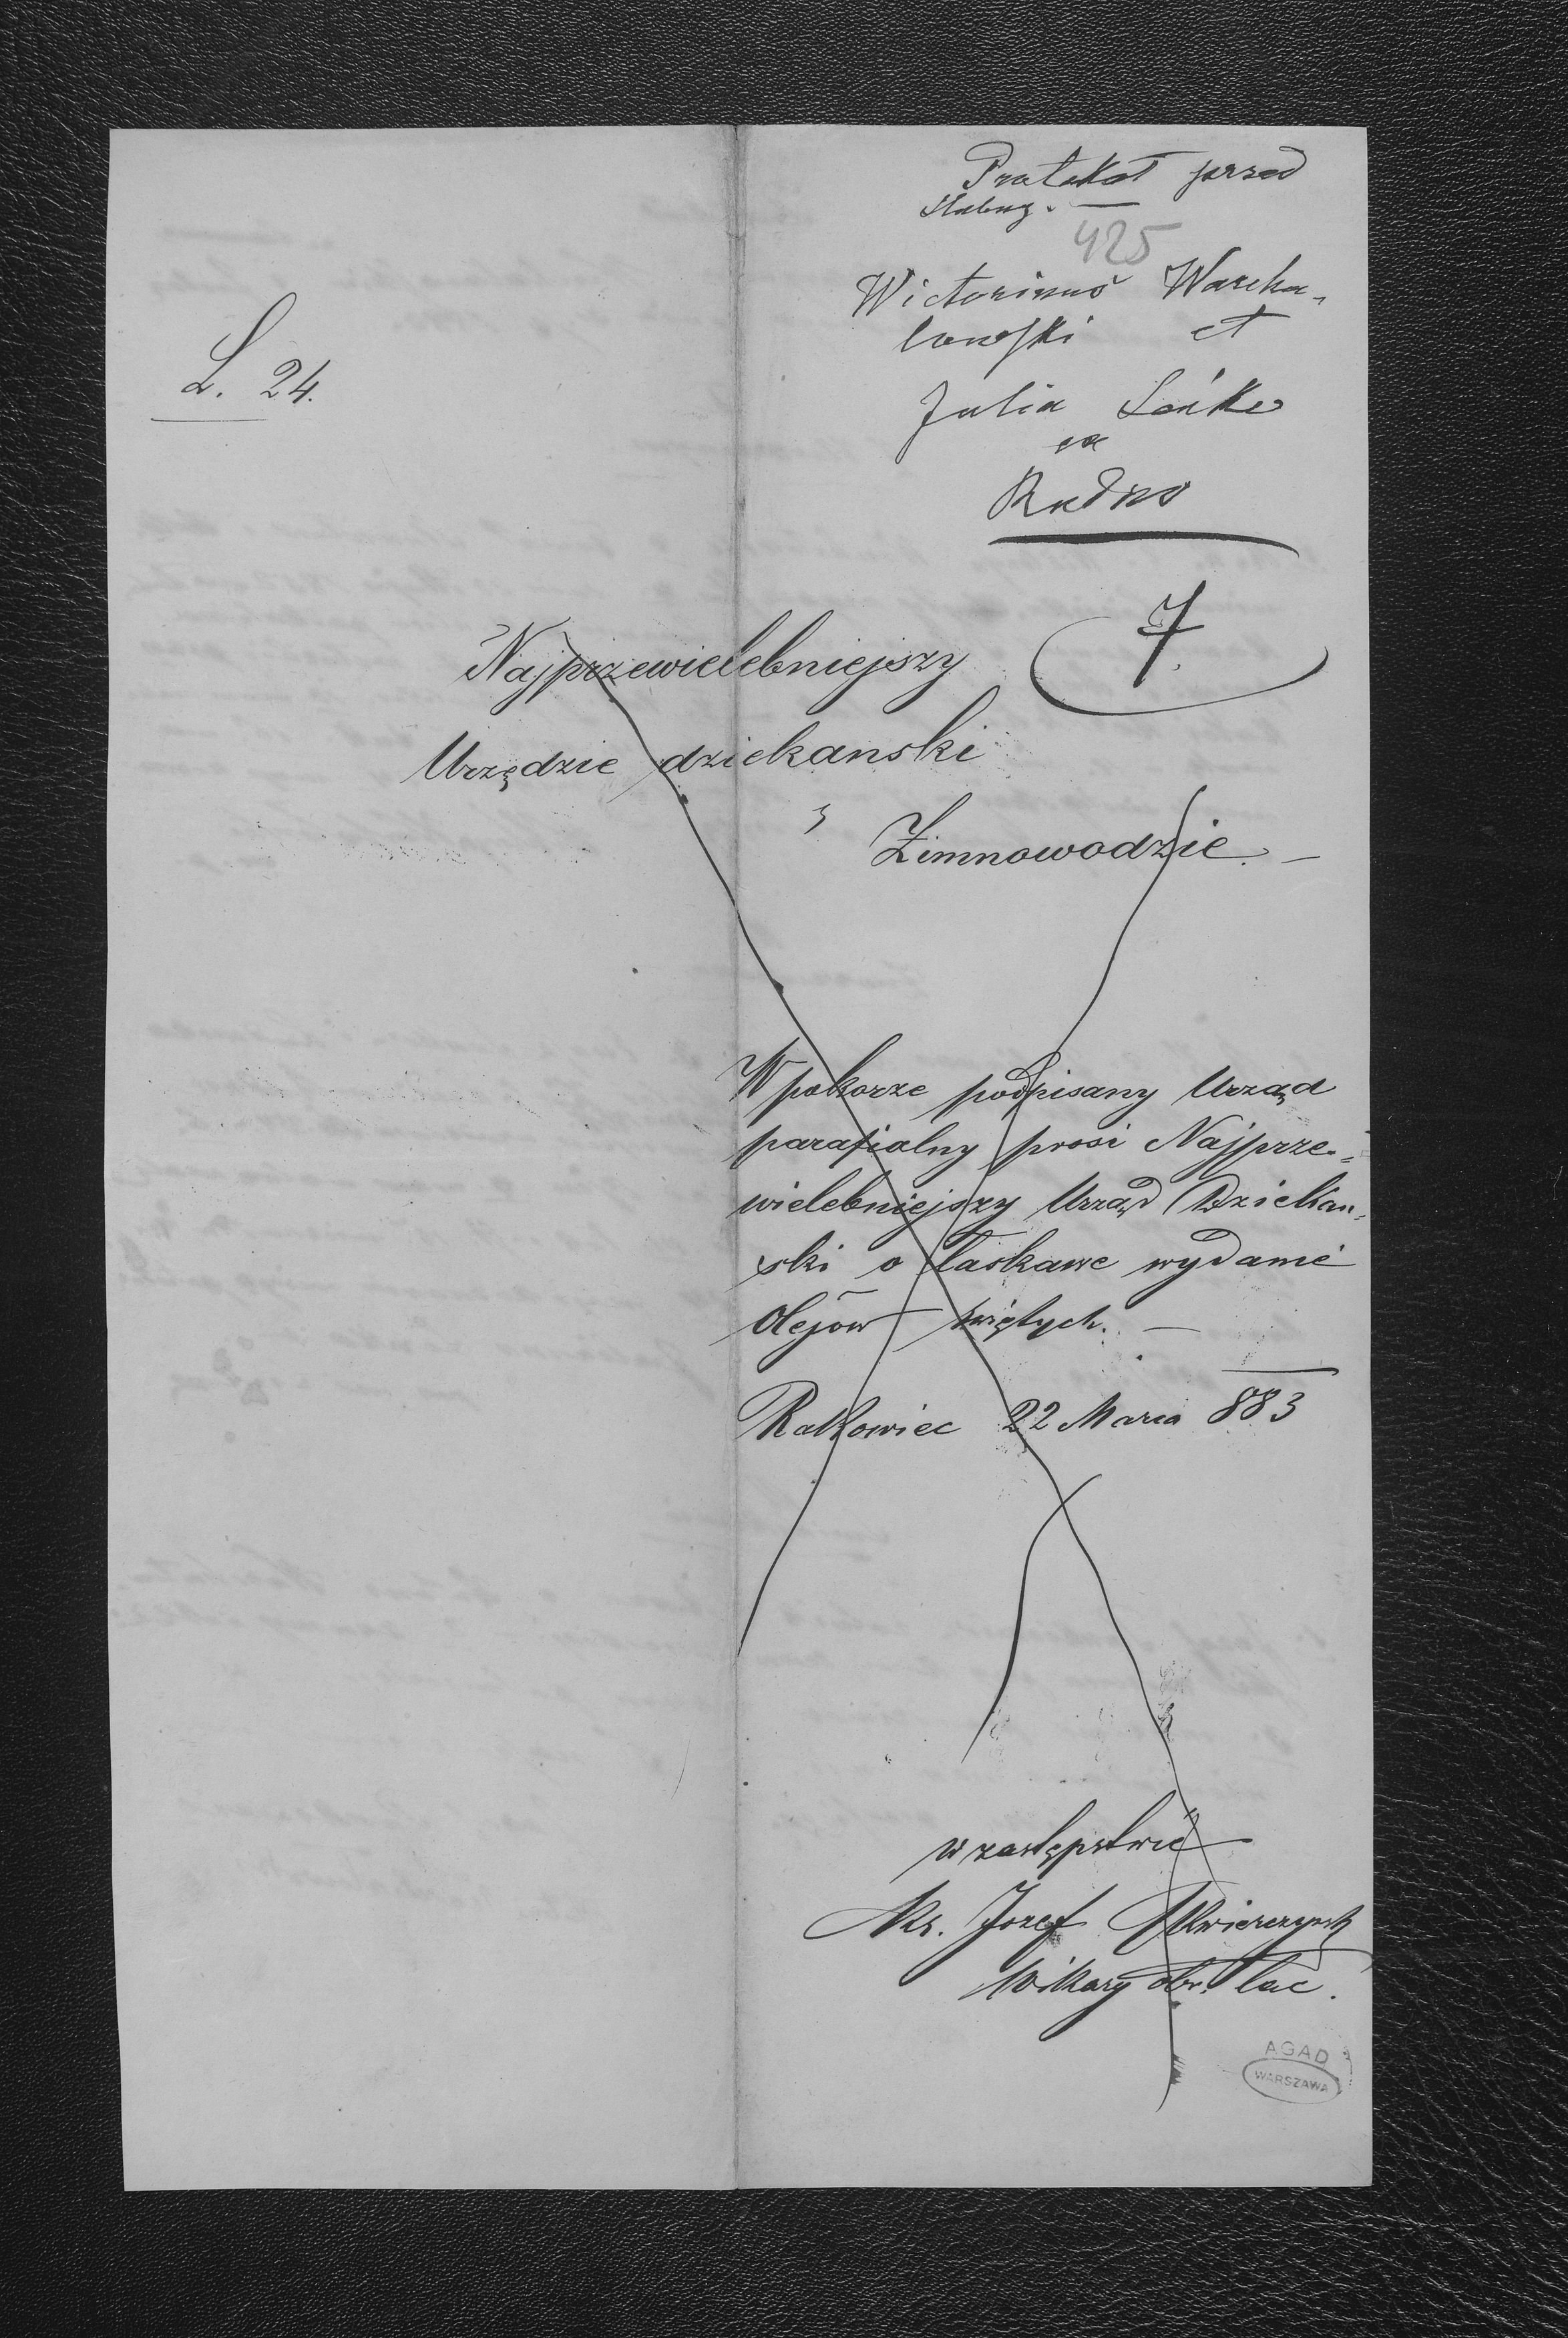 Protokoł przed
ślubny. —
425
Wictorinus Warcha-
lowski et
Julia Lońke
ex
Rudno
L. 24.
7.
Najprzewielebniejszy
Urzędzie dziekanski
w Zimnowodzie. —
W pokorze podpisany Urząd
parafialny prosi Najprze-
wielebniejszy Urząd Dziekan-
ski o łaskawe wydanie
Olejów świętych. —
Rakowiec 22 Marca 883
w zastępstwie
Ks. Jozef
Wikary obr. łac.
AGAD
WARSZAWA